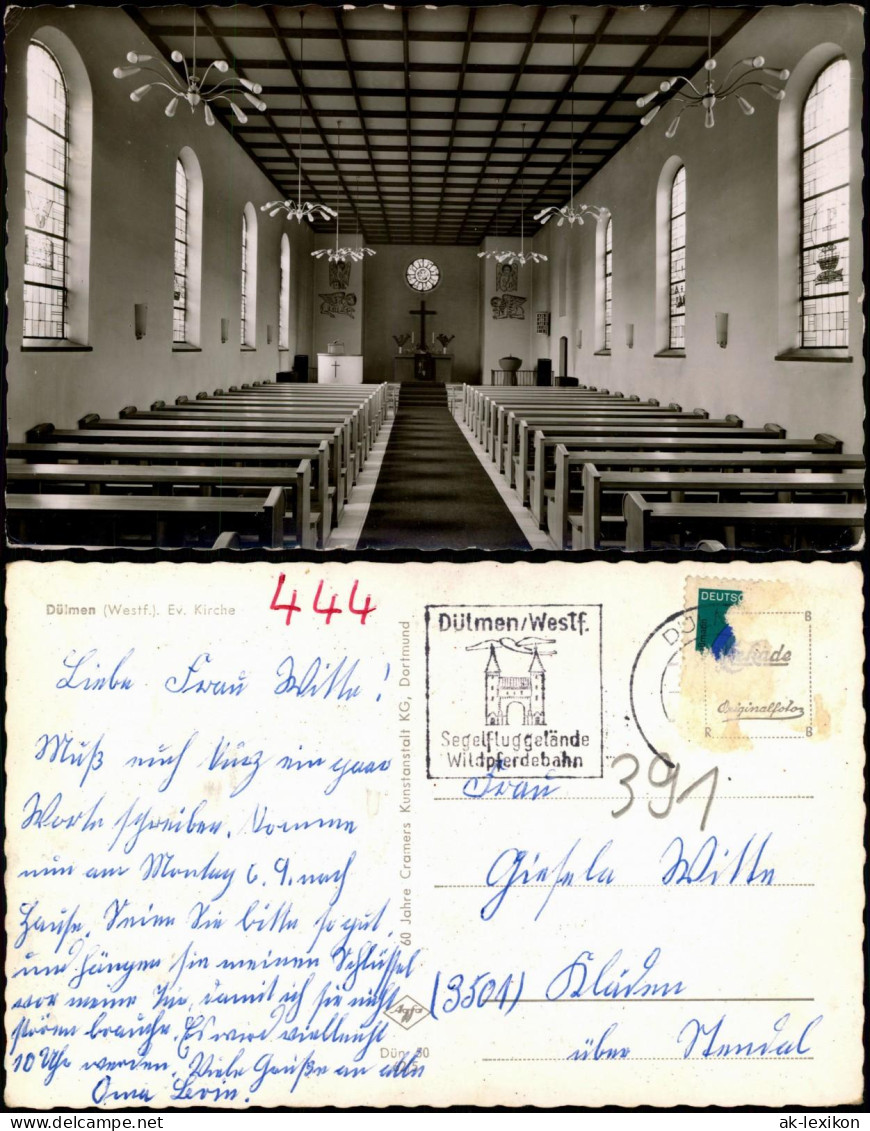 Dülmen (Westf.). Ev. Kirche
444
Liebe Frau Witte!
Muß euch kurz ein paar
Worte schreiben. Komme
nun am Montag 6. 9. nach
Hause. Seien Sie bitte so gut,
und hängen sie meinen Schlüssel
vor meine Tür, damit ich sie nicht
stören brauche. Es wird vielleicht
10 Uhr werden. Viele Grüße an alle
Oma
60 Jahre Cramers Kunstanstalt KG, Dortmund
Agfa
Dülmen/Westf.
Segelfluggelände
Wildpferdebahn
DÜ
DEUTSC
B
Originalfoto
R B
391
Frau
Giesela Witte
(3501) Kläden
über Stendal
ak-lexikon